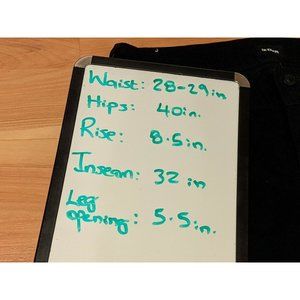 Waist: 28-29in
Hips: 40in.
Rise: 8.5in.
Inseam: 32 in
Leg
opening: 5.5in.